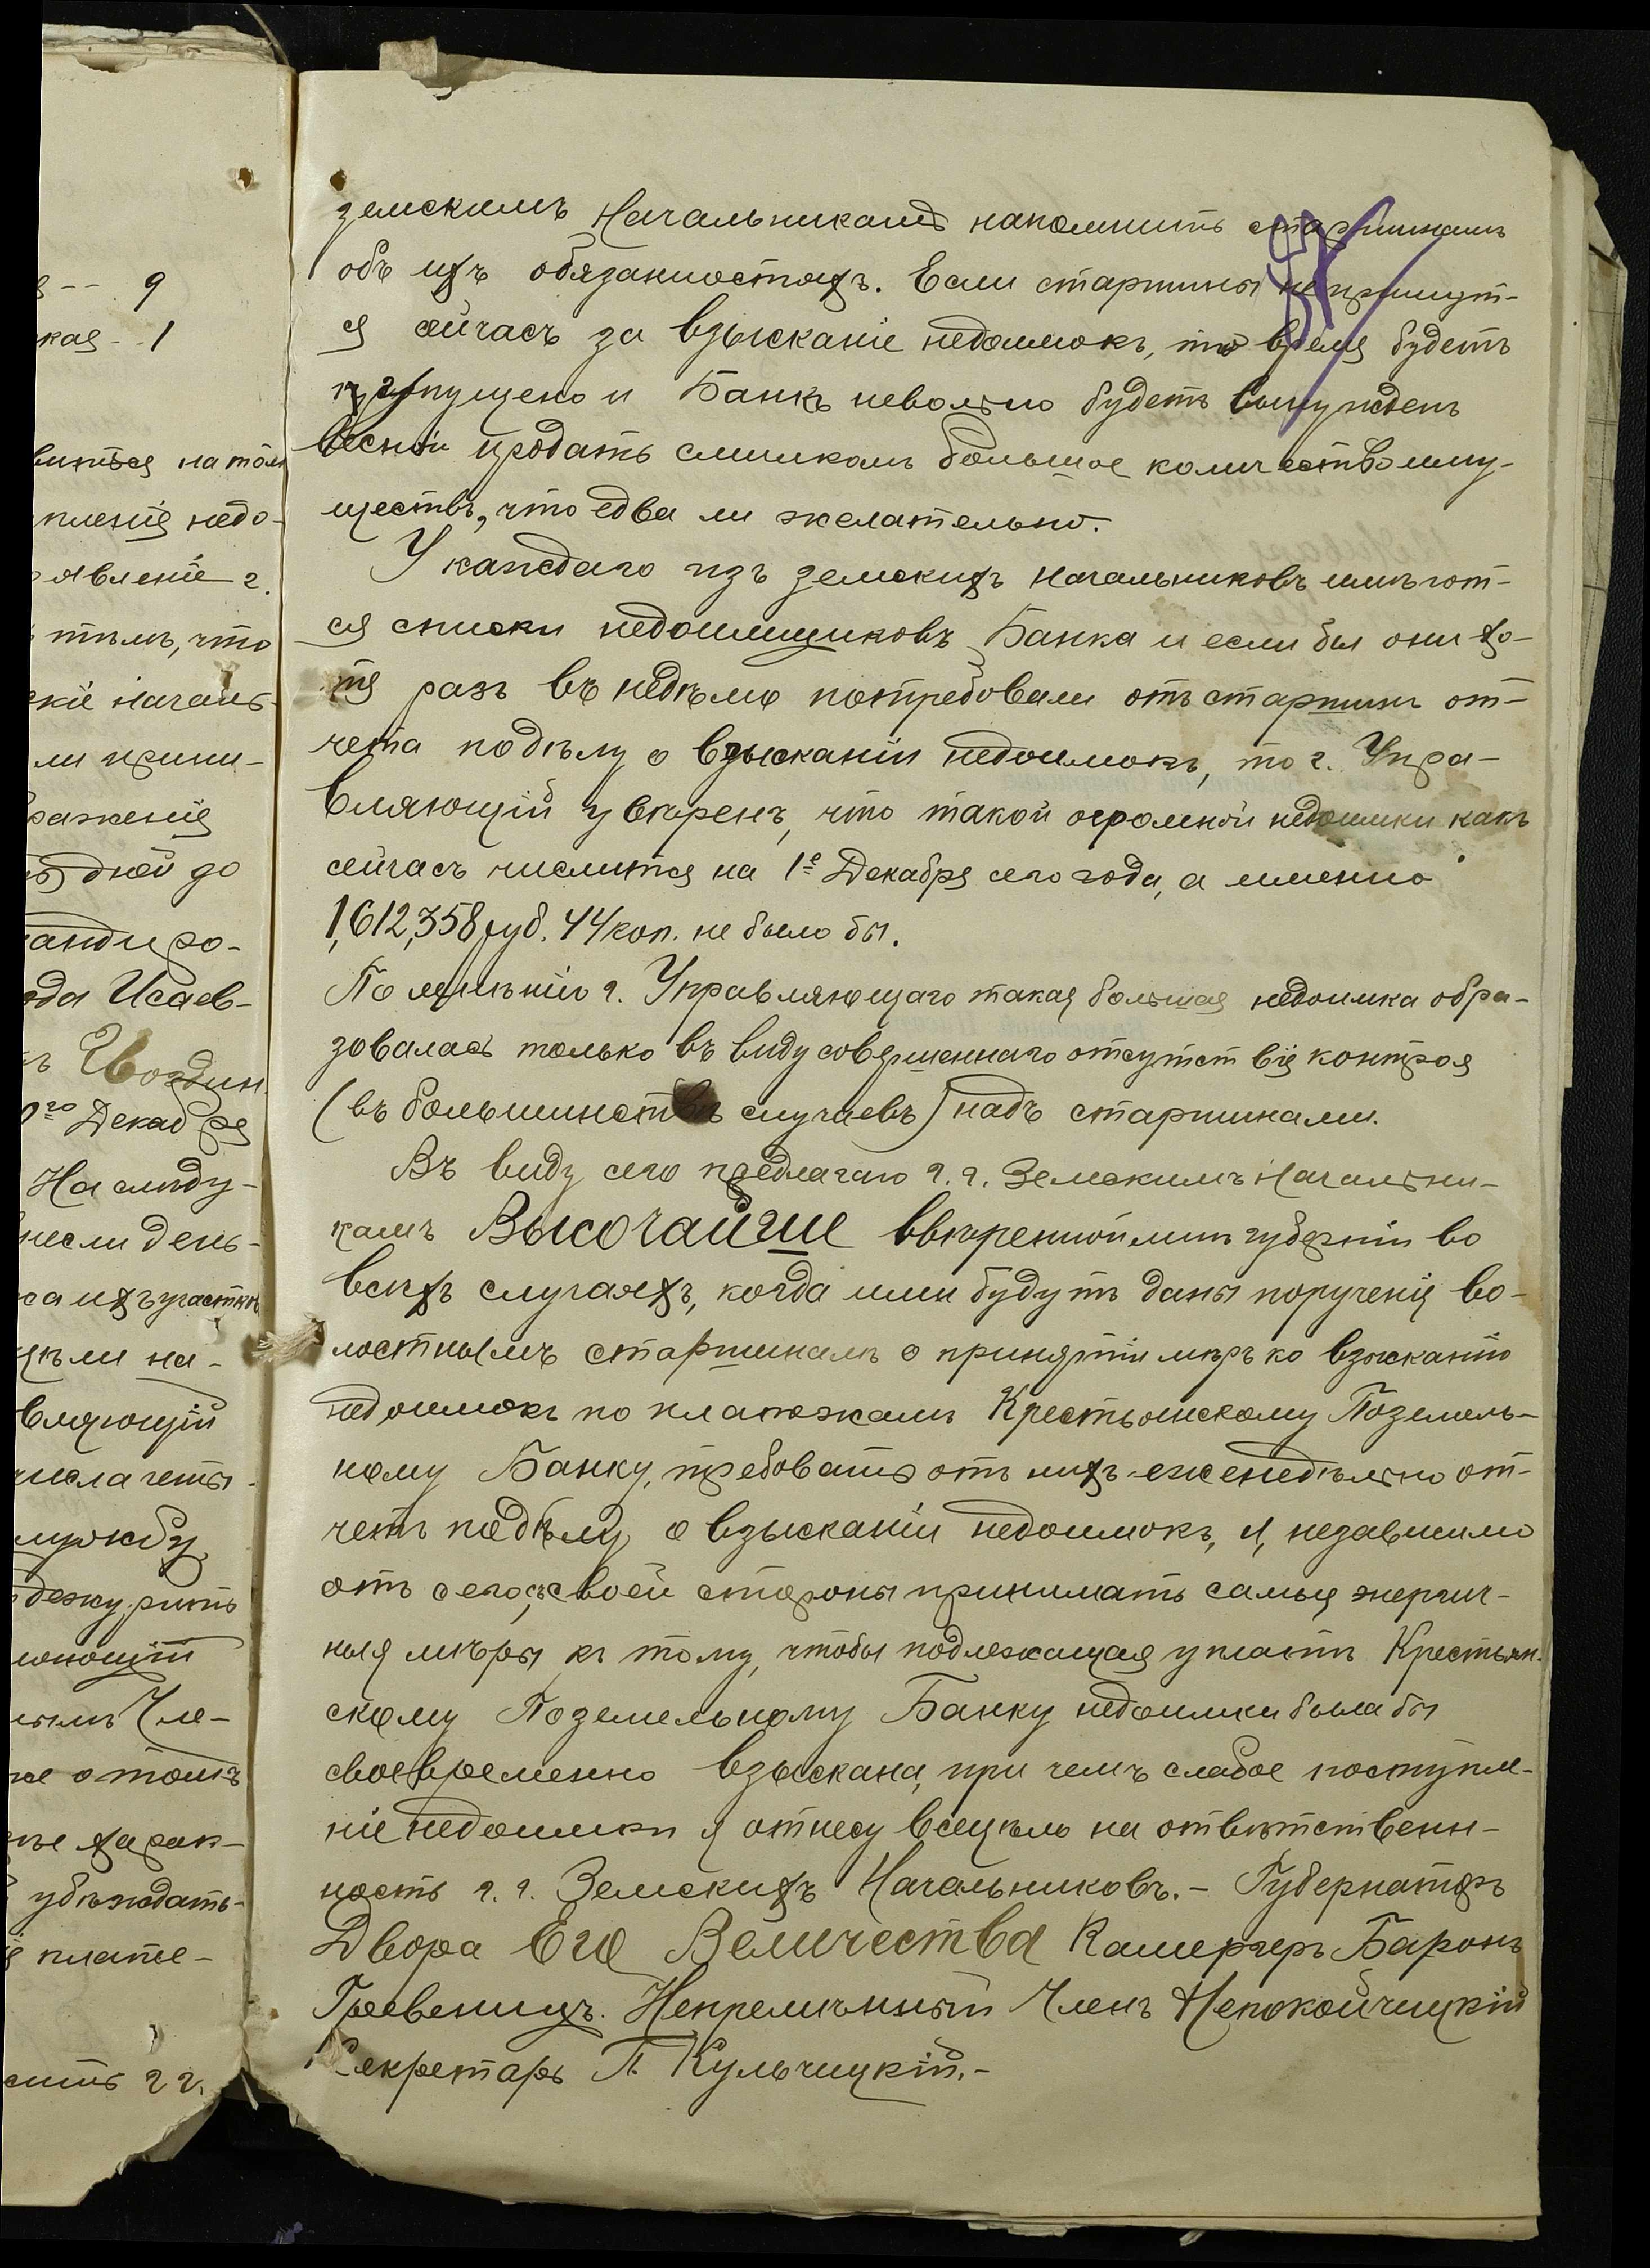 я -- 9
кая - 1
виться на том
пленiя недо-
явленiе г.
тѣмъ, что
скiе Началь-
ли прини-
раженiя
дней до
андиро-
ода Исаев-
Гвоздин.
0го Декабря
На слѣду-
несли день-
са ихъ участкѣ
цѣли на-
вляющiй
числа четы-
лужбу
дежурить
нымъ Чле-
же о томъ
ные харак-
убѣждать-
я плате-
сить г.г.
земскимъ Начальникамъ напомнить старшинамъ
объ ихъ обязанностяхъ. Если старшины не примут-
ся сейчасъ за взысканiе недоимокъ, то время будетъ
пропущено и Банкъ невольно будетъ вынужденъ
весной продать слишкомъ большое количество иму-
ществъ, что едва ли желательно.
У каждаго изъ земскихъ начальниковъ имѣют-
ся списки недоимщиковъ Банка и если бы они хо-
тя разъ въ недѣлю потребовали отъ старшинъ от-
чета по дѣлу о взысканiи недоимокъ, то г. Упра-
вляющiй увѣренъ, что такой огромной недоимки какъ
сейчасъ числится на 1е Декабря сего года, а именно
1,612,358 руб. 44 коп. не было бы.
По мнѣнiю г. Управляющаго такая большая недоимка обра-
зовалась только въ виду совершеннаго отсутствiя контроля
(въ большинствѣ случаевъ) надъ старшинами.
Въ виду сего предлагаю г.г. Земскимъ Начальни-
камъ Высочайше ввѣренной мнѣ губернiи во
всѣхъ случаяхъ, когда ими будутъ даны порученiя во-
лостнымъ старшинамъ о принятiи мѣръ ко взысканiю
недоимокъ по платежамъ Крестьянскому Поземель-
ному Банку, требовать отъ нихъ еженедѣльно от-
четъ по дѣлу о взысканiи недоимокъ, и, независимо
отъ сего, съ своей стороны принимать самыя энергич-
ныя мѣры къ тому, чтобы подлежащая уплатѣ Крестьян-
скому Поземельному Банку недоимки была бы
своевременно взыскана, при чемъ слабое поступле-
нiе недоимки я отнесу всецѣло на отвѣтственн-
ность г.г. Земскихъ Начальниковъ.- Губернаторъ
Двора Его Величества Камергеръ Баронъ
Гревеницъ. Непремѣнный Членъ Непокойчицкiй
Секретарь П. Кульчицкiй.-